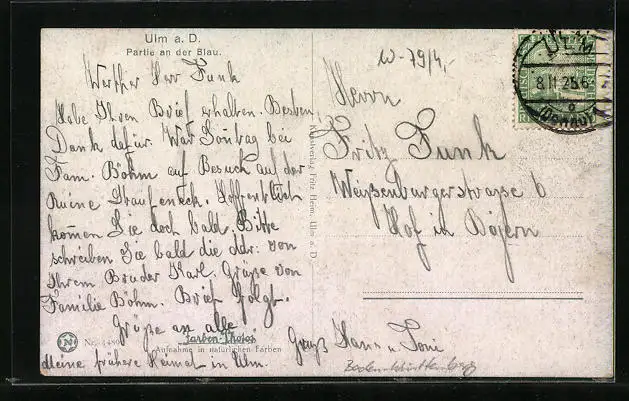 Ulm a. D.
Partie an der Blau.
Werther Herr Funk
Habe Ihren Brief erhalten. Besten
Dank dafür. War Sonntag bei
Fam. Böhm auf Besuch auf der
Ruine Staufeneck. Hoffentlich
kommen Sie doch bald. Bitte
schreiben Sie bald die Adr. von
Ihrem Bruder Karl. Grüße von
Familie Böhm. Brief folgt.
Grüße an alle
Meine frühere Heimat in Ulm.
Gruß Hans u. Toni
Nr. 1480
Farben-Photos
Aufnahme in natürlichen Farben
Kunstverlag Fritz Heim, Ulm a. D.
W-79/4,-
Herrn
Fritz Funk
Weißenburgerstrasse 6
Hof in Bayern
ULM
(Donau)